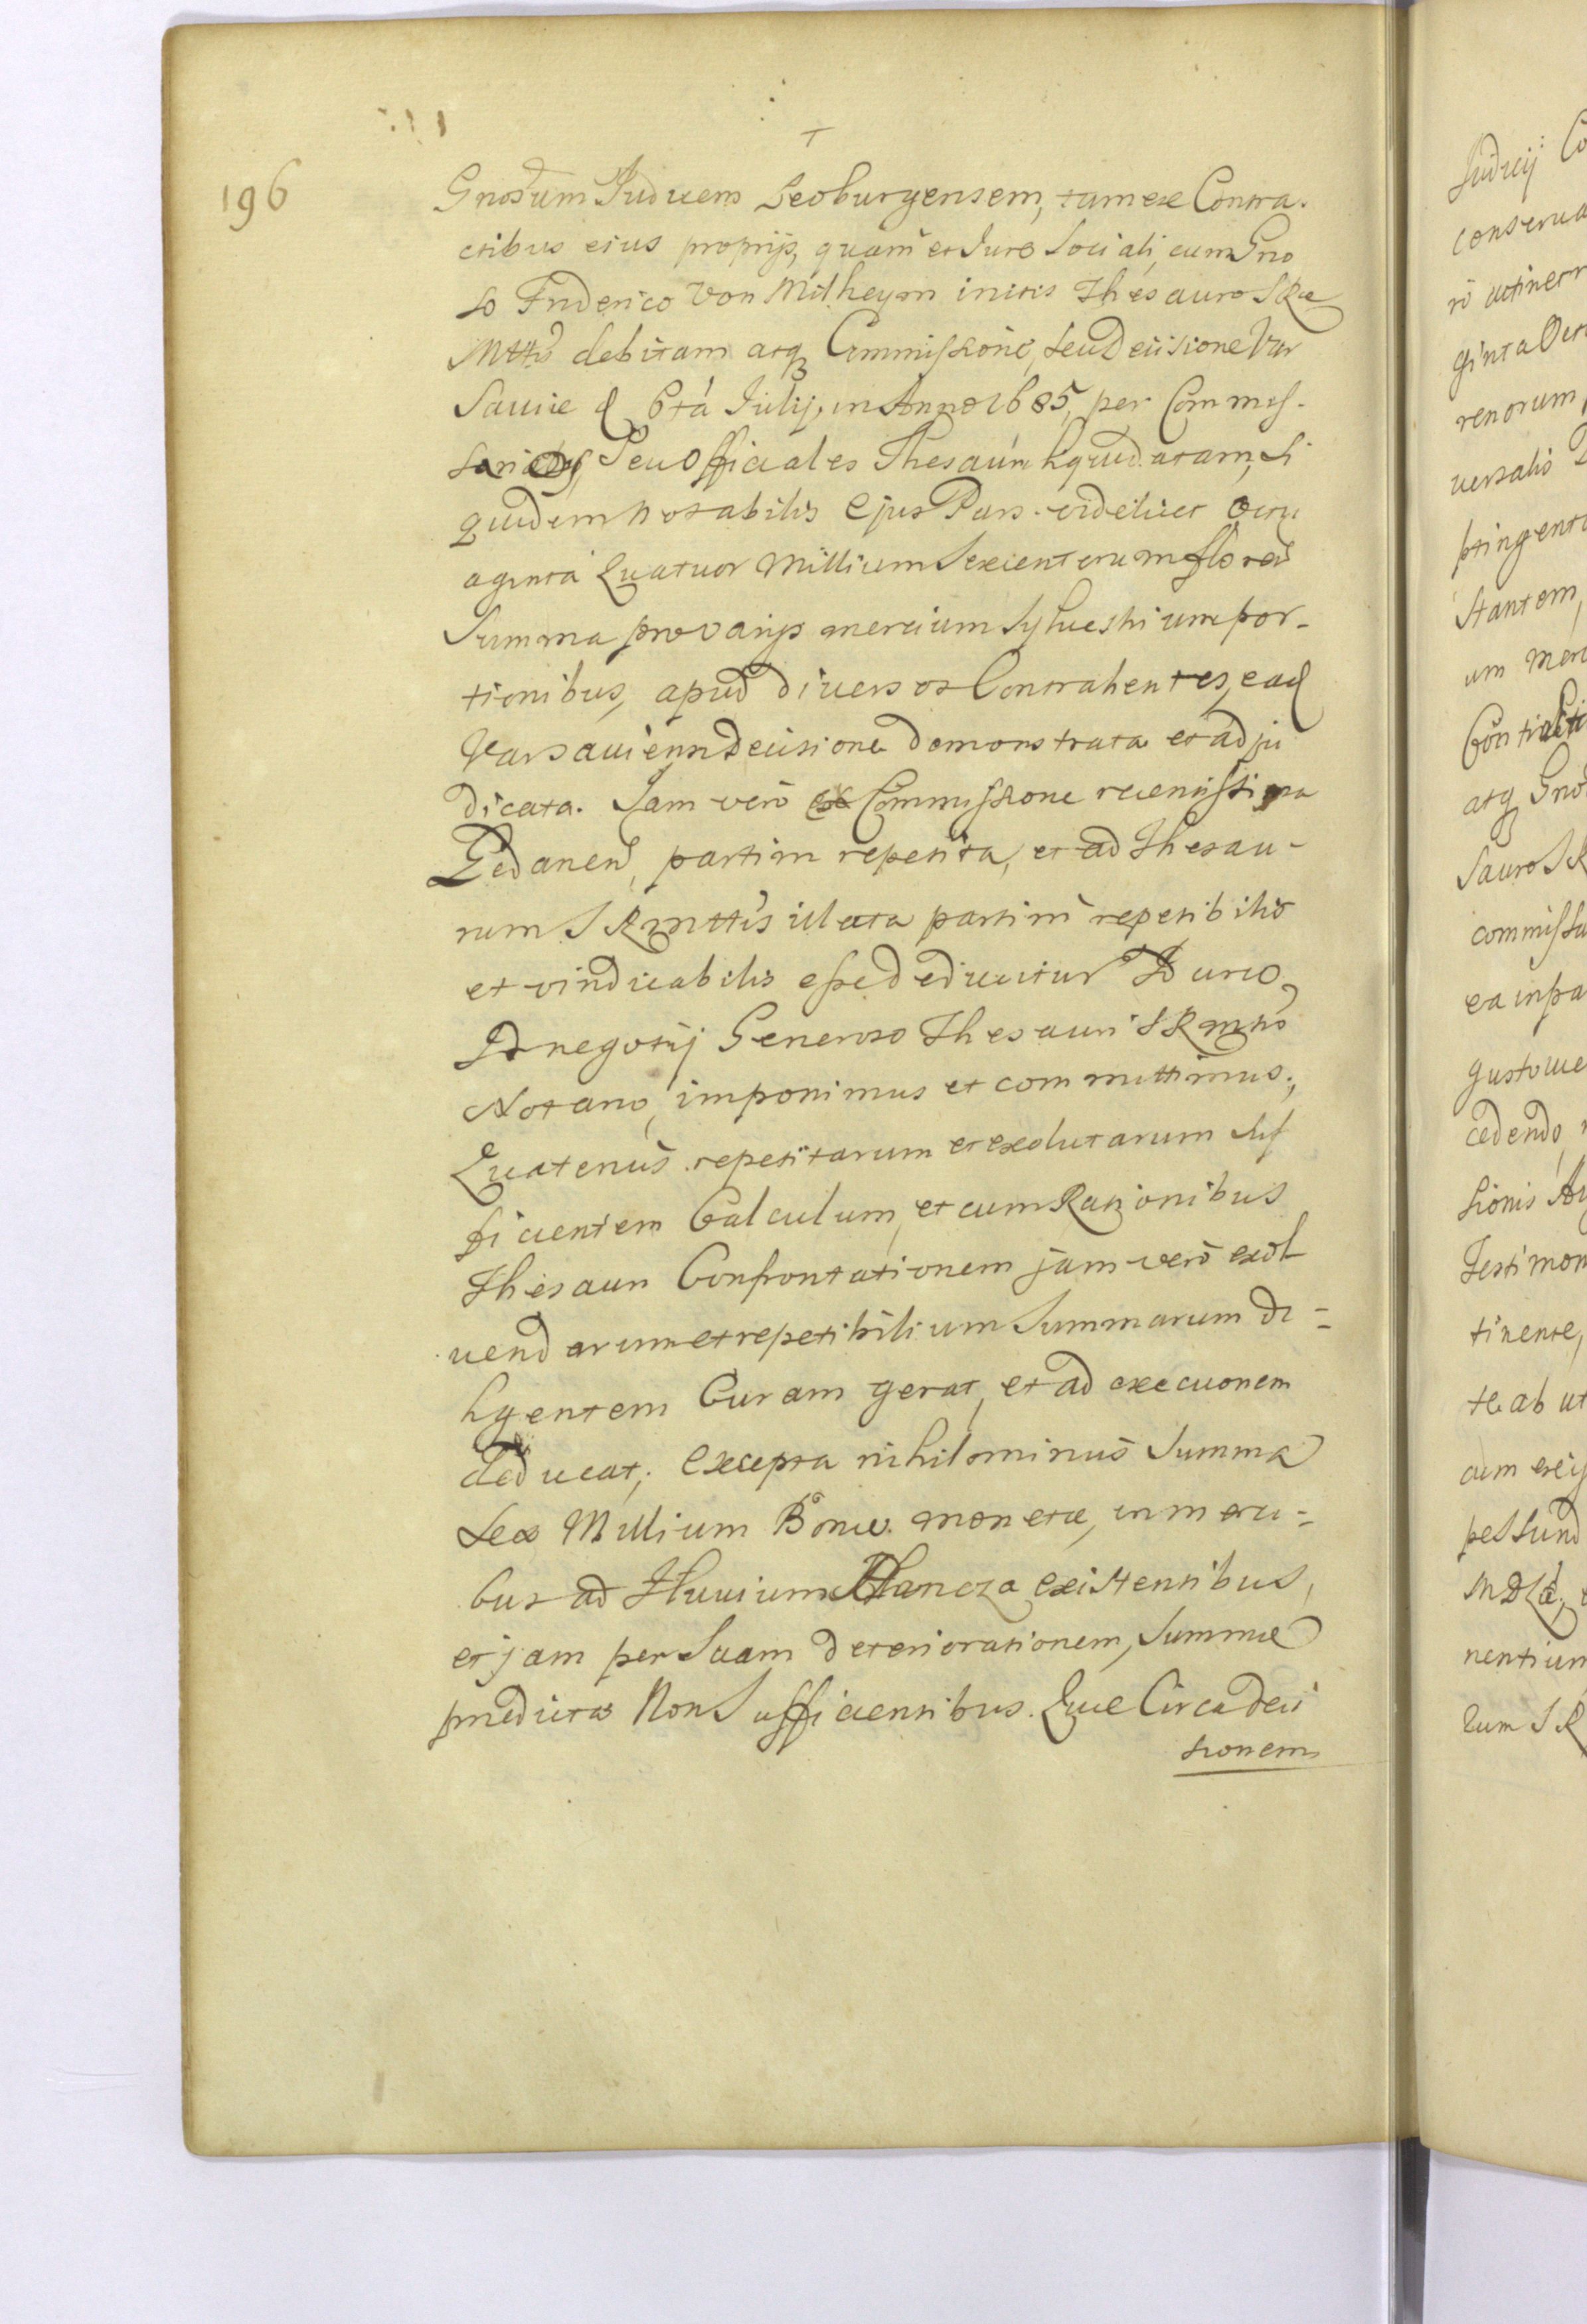 196
Gnosum Iudicem Leoburgensem, tam ex Contra-
ctibus eius proprijs, quam et Iure Sociali, cum Gno
so Friderico Von Milheym initis Thesauro SRæ
Mttis debitam atq Commissione, seu Decisione Var
Saviæ d 6ta Iulij, in Anno 1685, per Commis-
Seu Officiales Thesauri liquidatam, Si
quidem Notabilis Ejus Pars videlicet Octu
aginta Quatuor Millium Sexcentorum floren
Summa pro varijs mercium Sylvestrium por-
tionibus, apud diversos Contrahentes, ead
Varsaviensi Decisione demonstrata et adju
dicata. Jam vero ex Commissione recentissima
Gedanen, partim repetita, et ad Thesau-
rum SRMttis illata partim repetibilis
et vindicabilis esse dediucitur
Id negotij Generoso Thesauri SRMttis
Notario, imponimus et committimus;
Quatenus repetitarum et exolutarum Suf
ficientem Calculum, et cum Rationibus
Thesauri Confrontationem jam vero exol
vendarum et repetibilium Summarum di=
ligentem Curam gerat, et ad execuonem
deducat; Excepta nihilominus Summa
Sex Millium Bonæ monetæ, in merci=
bus ad Fluvium Hancza existentibus,
et jam per Suam deteriorationem, Summæ
prædictæ Non Sufficientibus. Quæ Circa Deci
sionem
Iudicij Co
conserva
ri
ginta Oct
renorum
versalis D
ptingent
Stantem,
um Merc
Contract
atq Gnos
Sauro SR
commissa
ea in pa
gusto
cedendo
Sionis
Testimon
tinente,
te ab
cum
pessund

nentium
lum SR